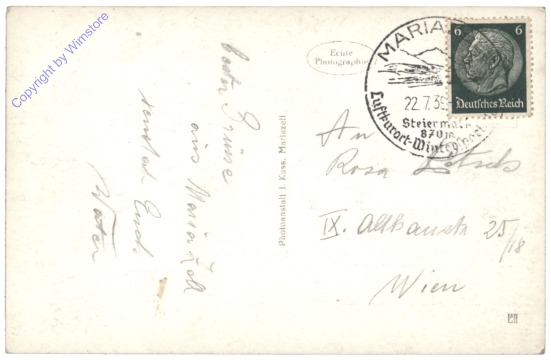 Copyright by Wimstore
Echte
Photographie
MARIA
22.7.39
Steiermark
870 m
Luftkurort-Wintersport
6 6
Deutsches Reich
Grüsse
aus Maria Zell
sendet Euch
Vater
Photoanstalt J. Kuss, Mariazell
An
Rosa
IX. 25/18
Wien